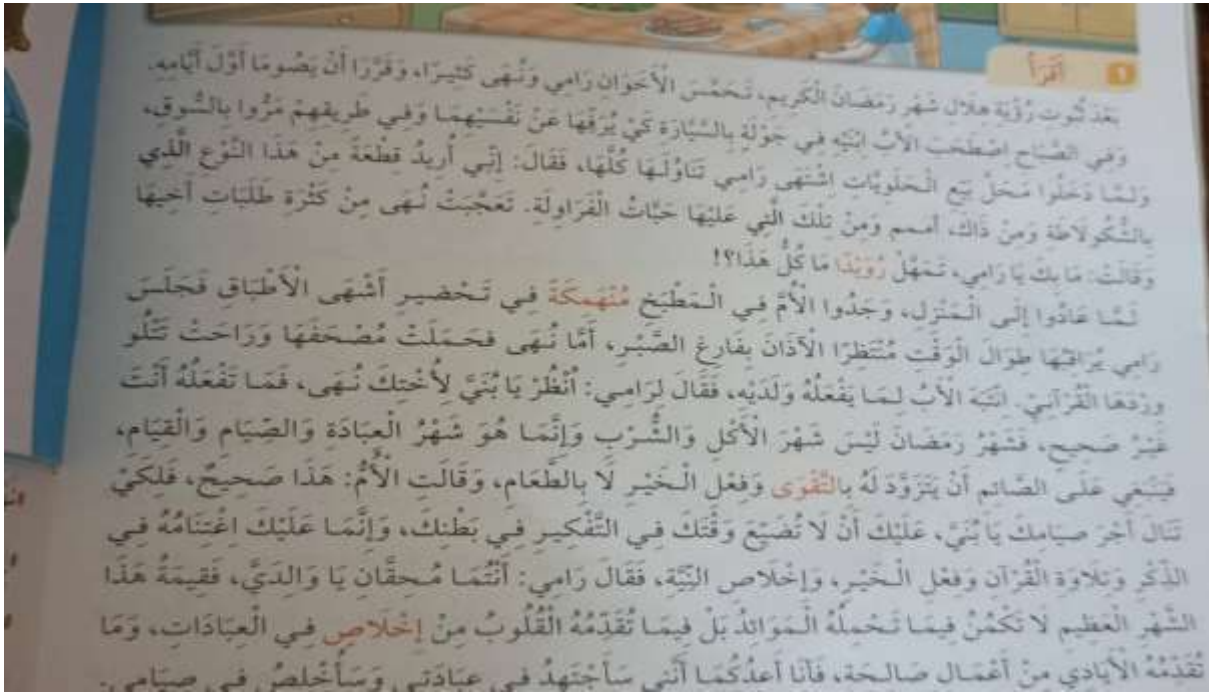 1 أَقْرَأُ
بَعْدَ ثُبُوتِ رُؤْيَةِ هِلَالِ شَهْرِ رَمَضَانَ الْكَرِيمِ، تَحَمَّسَ الْأَخَوَانِ رَامِي وَنُهَى كَثِيرًا، وَقَرَّرَا أَنْ يَصُومَا أَوَّلَ أَيَّامِهِ.
وَفِي الصَّبَاحِ اصْطَحَبَ الْأَبُ ابْنَيْهِ فِي جَوْلَةٍ بِالسَّيَّارَةِ كَيْ يُرَفِّهَا عَنْ نَفْسَيْهِمَا وَفِي طَرِيقِهِمْ مَرُّوا بِالسُّوقِ،
وَلَمَّا دَخَلُوا مَحَلَّ بَيْعِ الْحَلَوِيَّاتِ اِشْتَهَى رَامِي تَنَاوُلَهَا كُلَّهَا، فَقَالَ: إِنِّي أُرِيدُ قِطْعَةً مِنْ هَذَا النَّوْعِ الَّذِي
بِالشُّكُولَاطَةِ وَمِنْ ذَاكَ، أممم وَمِنْ تِلْكَ الَّتِي عَلَيْهَا حَبَّاتُ الْفَرَاوِلَةِ. تَعَجَّبَتْ نُهَى مِنْ كَثْرَةِ طَلَبَاتِ أَخِيهَا
وَقَالَتْ: مَا بِكَ يَا رَامِي، تَمَهَّلْ رُوَيْدًا مَا كُلُّ هَذَا؟!
لَمَّا عَادُوا إِلَى الْمَنْزِلِ، وَجَدُوا الْأُمَّ فِي الْمَطْبَخِ مُنْهَمِكَةً فِي تَحْضِيرِ أَشْهَى الْأَطْبَاقِ فَجَلَسَ
رَامِي يُرَاقِبُهَا طِوَالَ الْوَقْتِ مُنْتَظِرًا الْآذَانَ بِفَارِغِ الصَّبْرِ، أَمَّا نُهَى فَحَمَلَتْ مُصْحَفَهَا وَرَاحَتْ تَتْلُو
وِرْدَهَا الْقُرْآنِيَّ. انْتَبَهَ الْأَبُ لِمَا يَفْعَلُهُ وَلَدَيْهِ، فَقَالَ لِرَامِي: اُنْظُرْ يَا بُنَيَّ لِأُخْتِكَ نُهَى، فَمَا تَفْعَلُهُ أَنْتَ
غَيْرُ صَحِيحٍ، فَشَهْرُ رَمَضَانَ لَيْسَ شَهْرَ الْأَكْلِ وَالشُّرْبِ وَإِنَّمَا هُوَ شَهْرُ الْعِبَادَةِ وَالصِّيَامِ وَالْقِيَامِ،
فَيَنْبَغِي عَلَى الصَّائِمِ أَنْ يَتَزَوَّدَ لَهُ بِالتَّقْوَى وَفِعْلِ الْخَيْرِ لَا بِالطَّعَامِ، وَقَالَتِ الْأُمُّ: هَذَا صَحِيحٌ، فَلِكَيْ
تَنَالَ أَجْرَ صِيَامِكَ يَا بُنَيَّ، عَلَيْكَ أَنْ لَا تُضَيِّعَ وَقْتَكَ فِي التَّفْكِيرِ فِي بَطْنِكَ، وَإِنَّمَا عَلَيْكَ اغْتِنَامُهُ فِي
الذِّكْرِ وَتِلَاوَةِ الْقُرْآنِ وَفِعْلِ الْخَيْرِ، وَإِخْلَاصِ النِّيَّةِ، فَقَالَ رَامِي: أَنْتُمَا مُحِقَّانِ يَا وَالِدَيَّ، فَقِيمَةُ هَذَا
الشَّهْرِ الْعَظِيمِ لَا تَكْمُنُ فِيمَا تَحْمِلُهُ الْمَوَائِدُ بَلْ فِيمَا تُقَدِّمُهُ الْقُلُوبُ مِنْ إِخْلَاصٍ فِي الْعِبَادَاتِ، وَمَا
تُقَدِّمُهُ الْأَيَادِي مِنْ أَعْمَالٍ صَالِحَةٍ، فَأَنَا أَعِدُكُمَا أَنَّنِي سَأَجْتَهِدُ فِي عِبَادَتِي وَسَأُخْلِصُ فِي صِيَامِي.